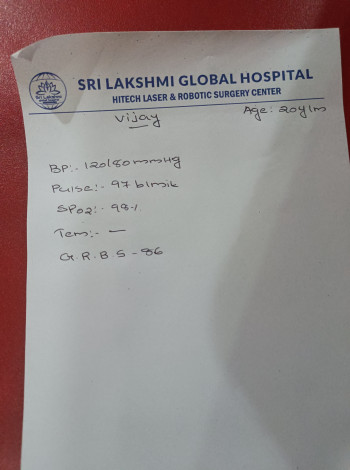 SRI LAKSHMI GLOBAL HOSPITAL
HITECH LASER & ROBOTIC SURGERY CENTER
Vijay Age: 20y/m
BP:- 120/80mmHg
Pulse:- 97 b/min
SPO2:- 98%
Tem:- —
G.R.B.S - 86